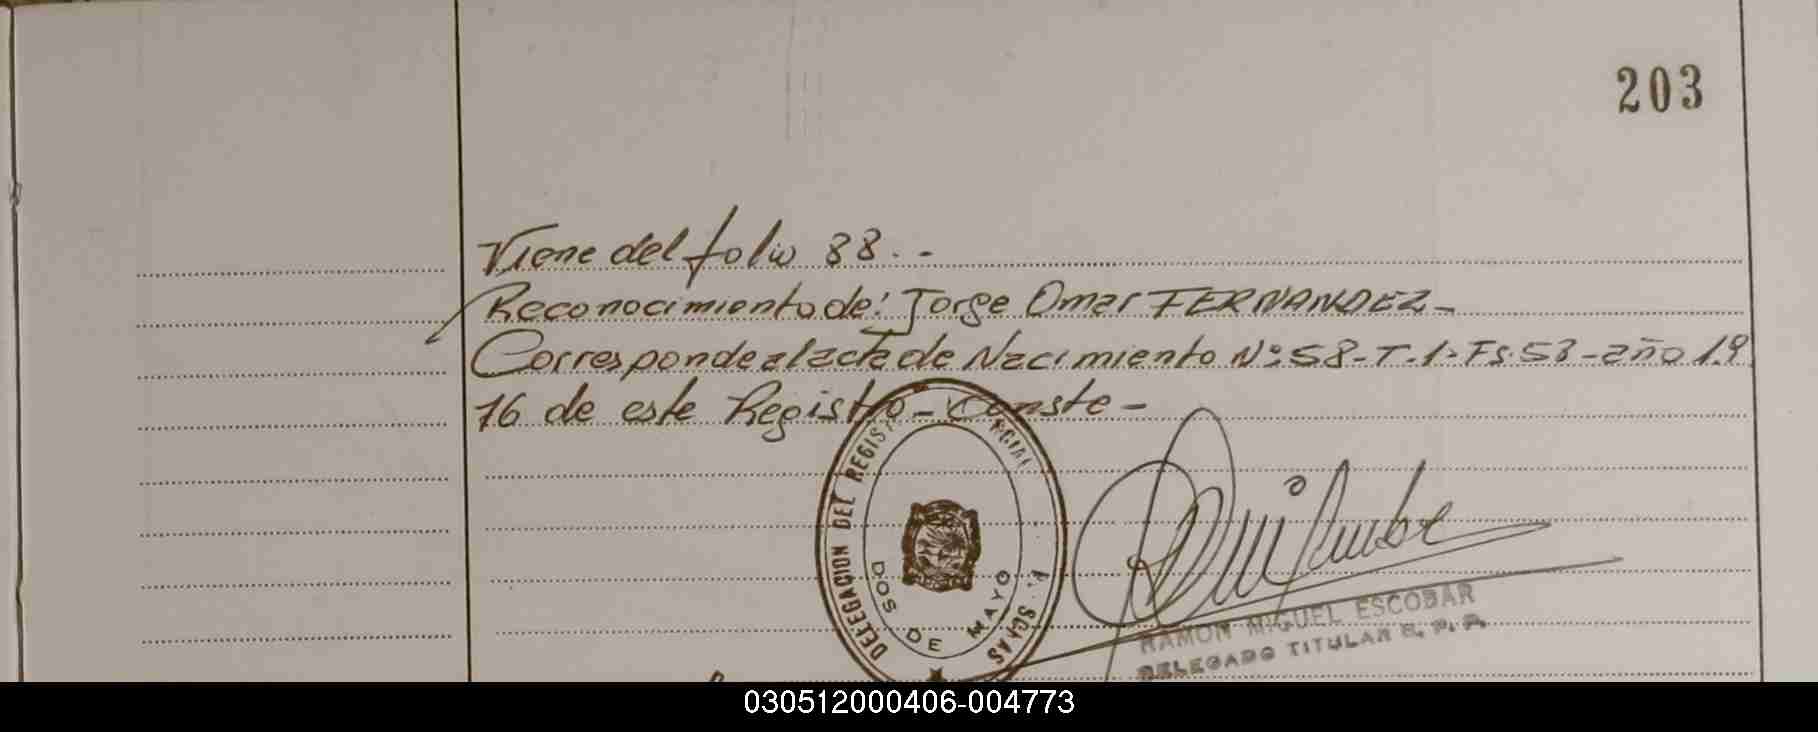 203
Viene del folio 88.-
Reconocimiento de: Jorge Omar FERNANDEZ-
Corresponde al acta de Nacimiento Nº 58-T-1-Fs.58-año 1.9
76 de este Registro- Conste-
DELEGACION DEL REGIST
DOS DE MAYO
RAMON MIGUEL ESCOBAR
DELEGADO TITULAR R. P. P.
030512000406-004773